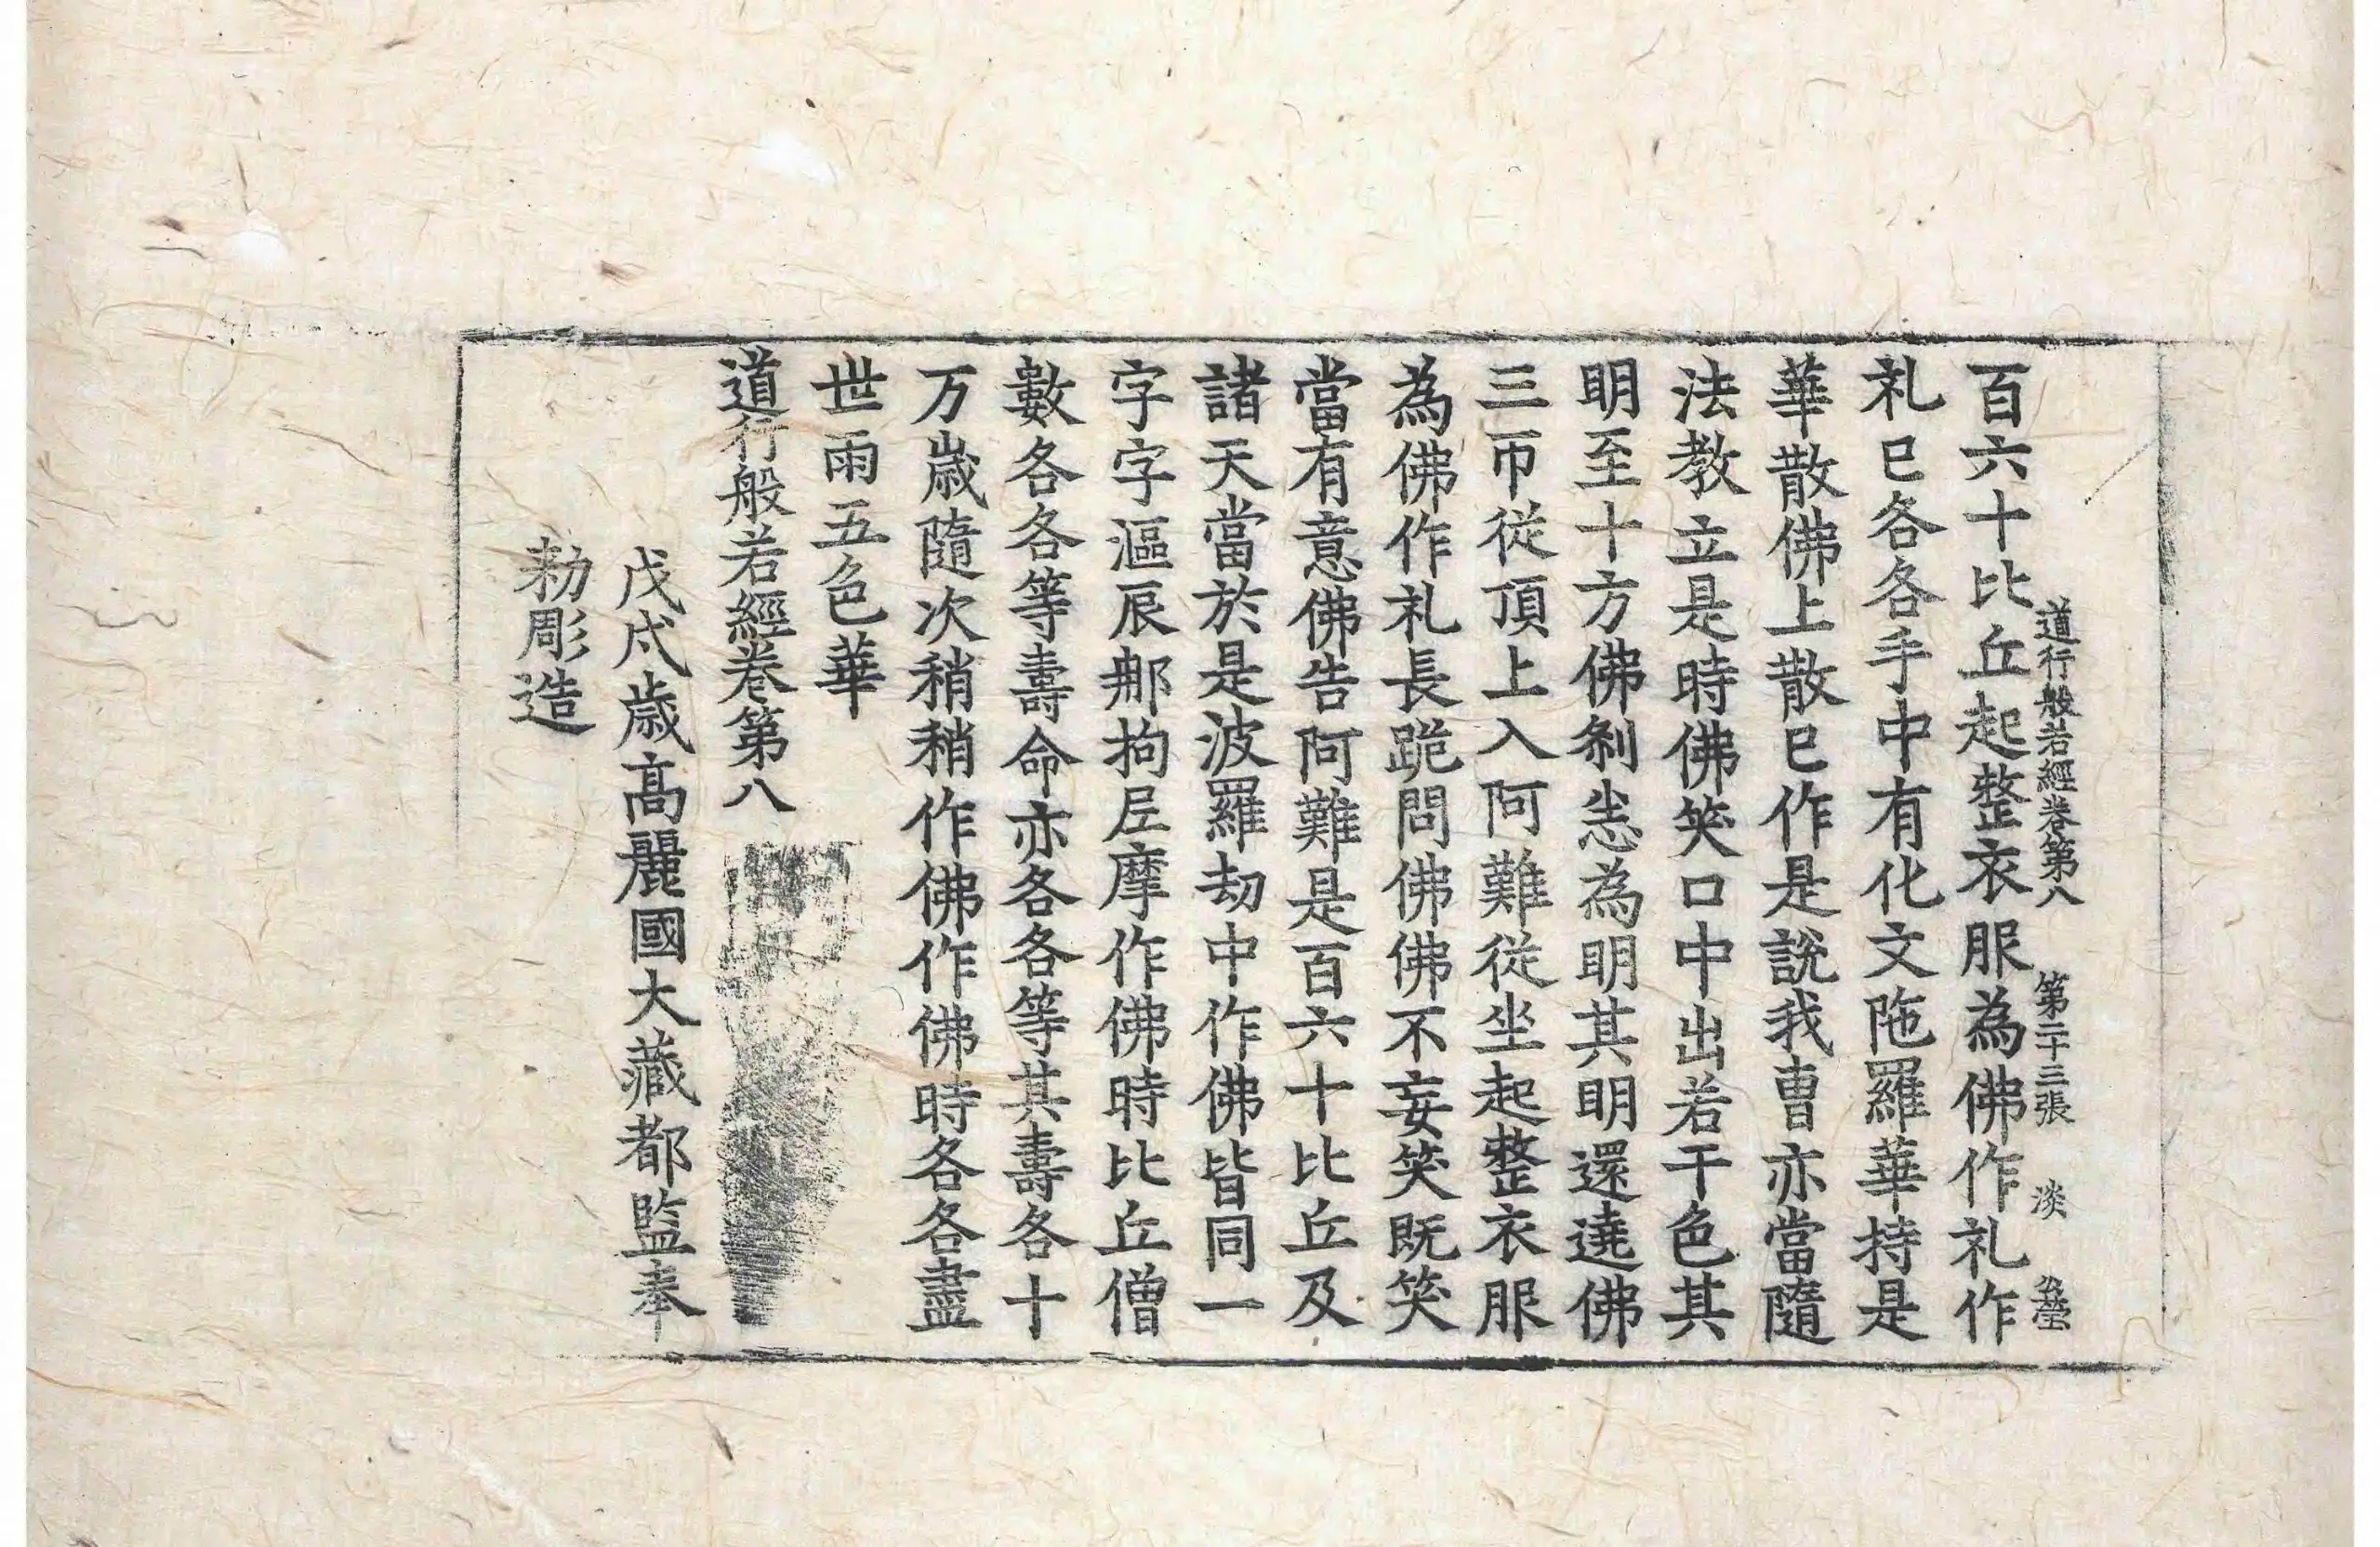 道行般若經卷第八 第二十三張 淡
百六十比丘起整衣服為佛作礼作
礼已各各手中有化文陁羅華持是
華散佛上散已作是說我曹亦當隨
法教立是時佛笑口中出若干色其
明至十方佛刹悉為明其明還遶佛
三帀從頂上入阿難從坐起整衣服
為佛作礼長跪問佛佛不妄笑既笑
當有意佛告阿難是百六十比丘及
諸天當於是波羅劫中作佛皆同一
字字漚辰那拘尼摩作佛時比丘僧
數各各等壽命亦各各等其壽各十
万歲隨次稍稍作佛作佛時各各盡
世雨五色華
道行般若經卷第八
戊戌歲高麗國大藏都監奉
勑彫造